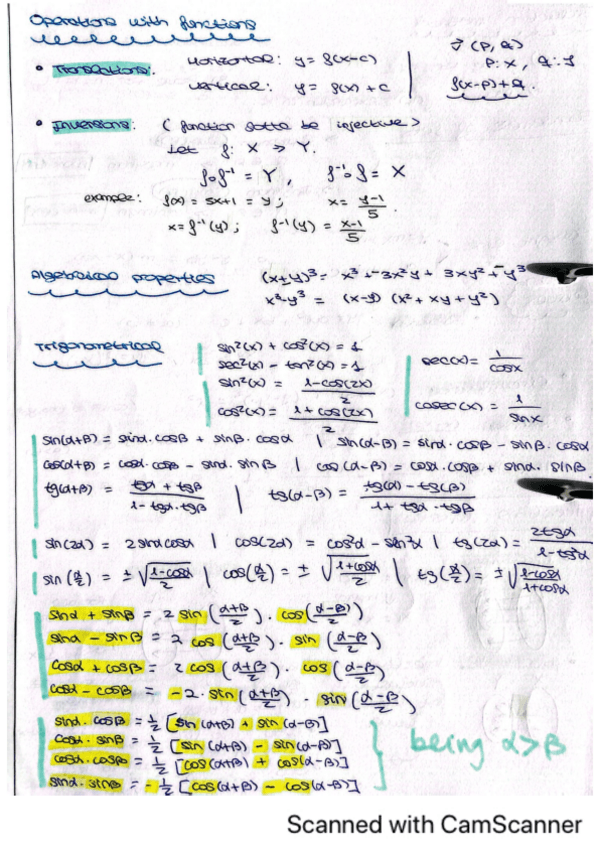 Operations with functions
• Translations: Horizontal: y = f(x+c)
vertical: y = f(x) + c
v⃗ (P, Q)
P: x, Q: y
f(x-P)+Q.
• Inversions: ( function gotta be injective)
Let f: X → Y.
f∘f⁻¹ = Y, f⁻¹∘f = X
example: f(x) = 5x+1 = y; x = (y-1)/5
x = f⁻¹(y); f⁻¹(y) = (x-1)/5
Algebraical properties
(x±y)³ = x³ ± 3x²y + 3xy² ± y³
x³-y³ = (x-y) (x²+xy+y²)
Trigonometrical
sin²(x) + cos²(x) = 1
sec²(x) - tan²(x) = 1
sin²(x) = (1-cos(2x))/2
cos²(x) = (1+cos(2x))/2
sec(x) = 1/cosx
cosec(x) = 1/sinx
sin(α+β) = sinα · cosβ + sinβ · cosα | sin(α-β) = sinα · cosβ - sinβ · cosα
cos(α+β) = cosα · cosβ - sinα · sinβ | cos(α-β) = cosα · cosβ + sinα · sinβ
tg(α+β) = (tgα + tgβ)/(1 - tgα · tgβ) | tg(α-β) = (tg(α) - tg(β))/(1 + tgα · tgβ)
sin(2α) = 2sinαcosα | cos(2α) = cos²α - sin²α | tg(2α) = 2tgα/(1-tg²α)
sin(α/2) = ±√((1-cosα)/2) | cos(α/2) = ±√((1+cosα)/2) | tg(α/2) = ±√((1-cosα)/(1+cosα))
sinα + sinβ = 2 sin((α+β)/2) · cos((α-β)/2)
sinα - sinβ = 2 cos((α+β)/2) · sin((α-β)/2)
cosα + cosβ = 2 cos((α+β)/2) · cos((α-β)/2)
cosα - cosβ = -2 · sin((α+β)/2) · sin((α-β)/2)
sinα · cosβ = ½ [sin(α+β) + sin(α-β)]
cosα · sinβ = ½ [sin(α+β) - sin(α-β)]
cosα · cosβ = ½ [cos(α+β) + cos(α-β)]
sinα · sinβ = -½ [cos(α+β) - cos(α-β)]
being α>β
Scanned with CamScanner